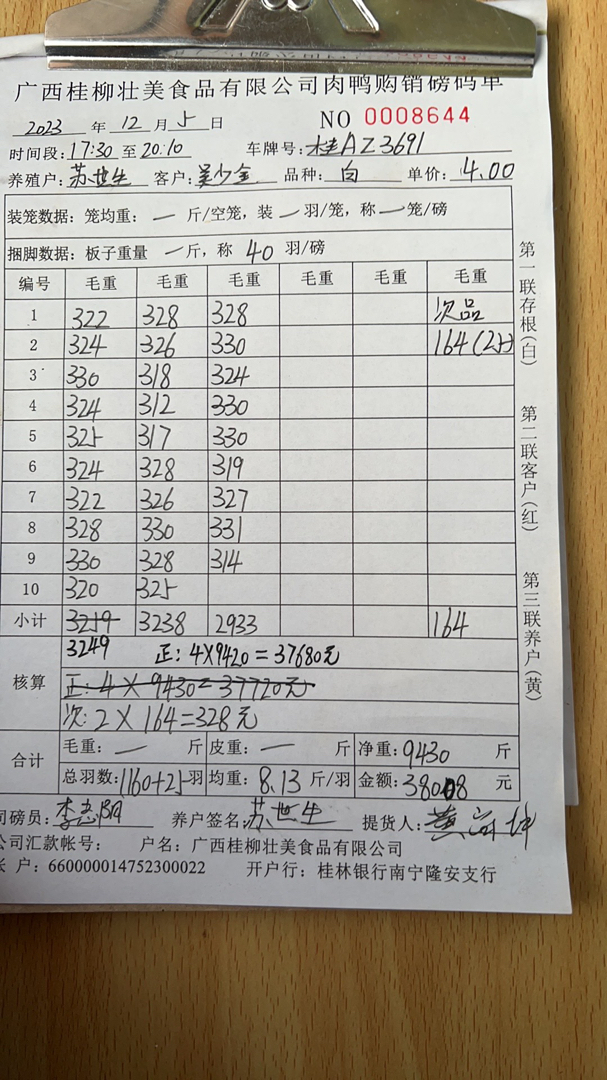 广西桂柳壮美食品有限公司肉鸭购销磅码单
2023 年 12 月 5 日 NO 0008644
时间段: 17:30 至 20:10 车牌号: 桂AZ3691
养殖户: 苏世生 客户: 吴少全 品种: 白 单价: 4.00
装笼数据: 笼均重: — 斤/空笼, 装 — 羽/笼, 称 — 笼/磅
捆脚数据: 板子重量 — 斤, 称 40 羽/磅
编号 毛重 毛重 毛重 毛重 毛重 毛重
1 322 328 328 次品
2 324 326 330 164(25)
3 330 318 324
4 324 312 330
5 325 317 330
6 324 328 319
7 322 326 327
8 328 330 331
9 330 328 314
10 320 325
小计 3259 3238 2933 164
3249 正: 4×9420=37680元
核算 正: 4×9430=37720元
次: 2×164=328元
合计 毛重: — 斤 皮重: — 斤 净重: 9430 斤
总羽数: 1160+25 羽 均重: 8.13 斤/羽 金额: 38008 元
司磅员: 李志明 养户签名: 苏世生 提货人: 黄
公司汇款帐号: 户名: 广西桂柳壮美食品有限公司
长 户: 660000014752300022 开户行: 桂林银行南宁隆安支行
第一联存根(白)
第二联客户(红)
第三联养户(黄)